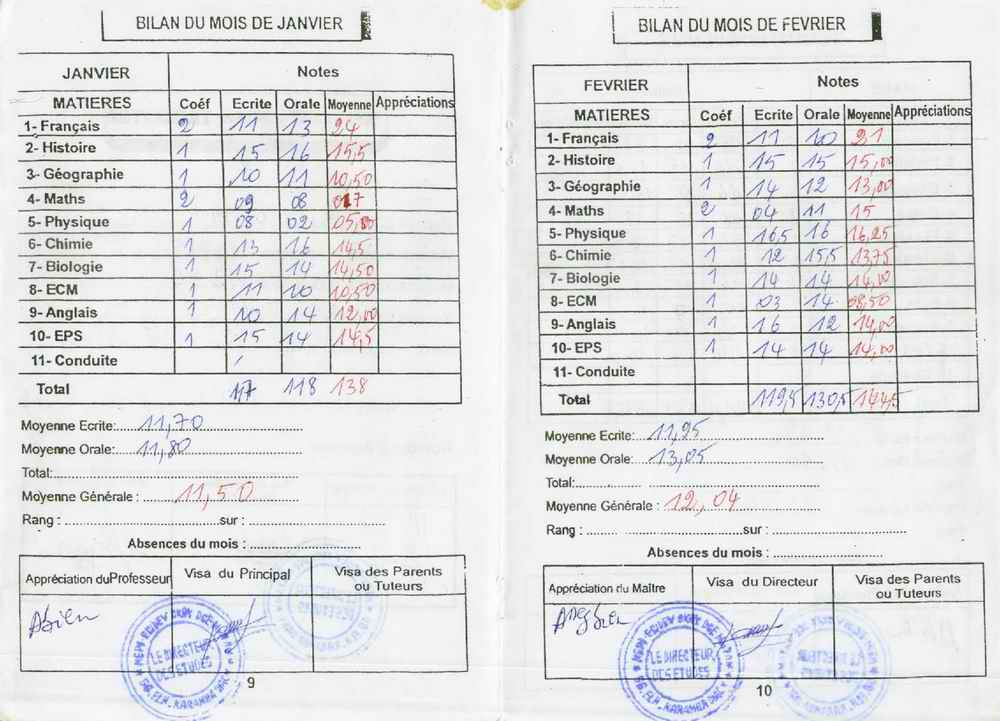 BILAN DU MOIS DE JANVIER
JANVIER Notes
MATIERES Coéf Ecrite Orale Moyenne Appréciations
1- Français 2 11 13 24
2- Histoire 1 15 16 15,5
3- Géographie 1 10 11 10,50
4- Maths 2 09 08 017
5- Physique 1 08 02 05,00
6- Chimie 1 13 16 14,5
7- Biologie 1 15 14 14,50
8- ECM 1 11 10 10,50
9- Anglais 1 10 14 12,00
10- EPS 1 15 14 14,5
11- Conduite
Total 117 118 138
Moyenne Ecrite: 11,70
Moyenne Orale: 11,80
Total:
Moyenne Générale : 11,50
Rang : sur :
Absences du mois :
Appréciation du Professeur Visa du Principal Visa des Parents ou Tuteurs
LE DIRECTEUR
DES ETUDES
9
BILAN DU MOIS DE FEVRIER
FEVRIER Notes
MATIERES Coéf Ecrite Orale Moyenne Appréciations
1- Français 2 11 10 21
2- Histoire 1 15 15 15,00
3- Géographie 1 14 12 13,00
4- Maths 2 04 11 15
5- Physique 1 16,5 16 16,25
6- Chimie 1 12 15,5 13,75
7- Biologie 1 14 14 14,00
8- ECM 1 03 14 08,50
9- Anglais 1 16 12 14,00
10- EPS 1 14 14 14,00
11- Conduite
Total 119,5 130,5 144,5
Moyenne Ecrite: 11,95
Moyenne Orale: 13,05
Total:
Moyenne Générale : 12,04
Rang : sur :
Absences du mois :
Appréciation du Maître Visa du Directeur Visa des Parents ou Tuteurs
LE DIRECTEUR
DES ETUDES
10